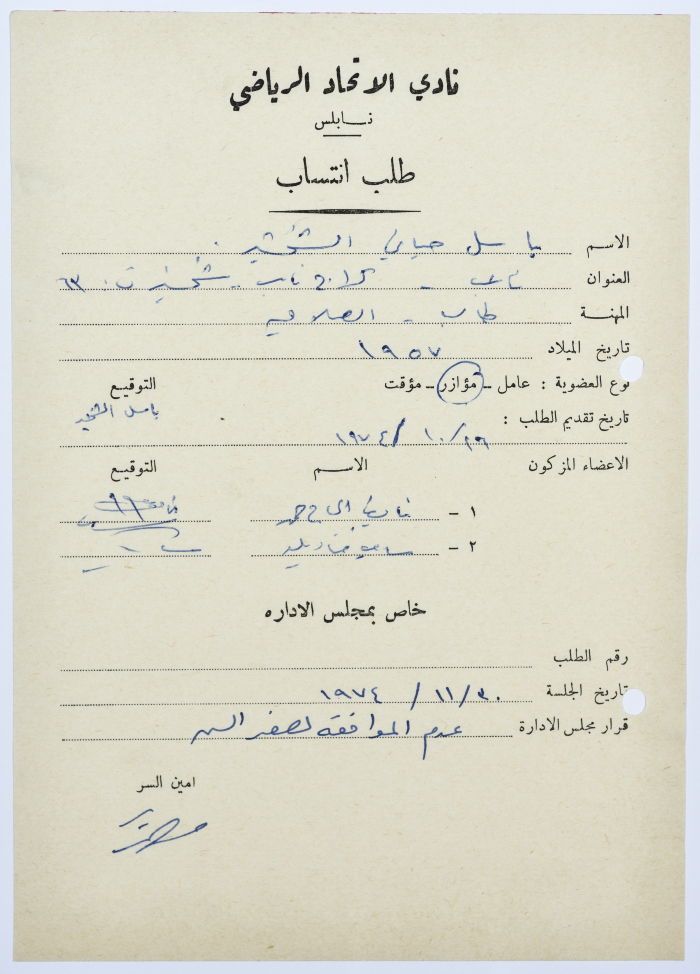 نادي الاتحاد الرياضي
نابلس
طلب انتساب
الاسم باسل حياتي الشخشير
العنوان نابلس - كراج نابلس - شخشير ت: ٦٣
المهنة طالب - الصلاحية
تاريخ الميلاد ١٩٥٧
نوع العضوية : عامل - مؤازر - مؤقت التوقيع
باسل الشخشير
تاريخ تقديم الطلب : ٢٩/١٠/١٩٧٤
الاعضاء المزكون الاسم التوقيع
١ -
٢ -
خاص بمجلس الاداره
رقم الطلب
تاريخ الجلسة ٣٠/١١/١٩٧٤
قرار مجلس الادارة عدم الموافقة لصغر السن
امين السر